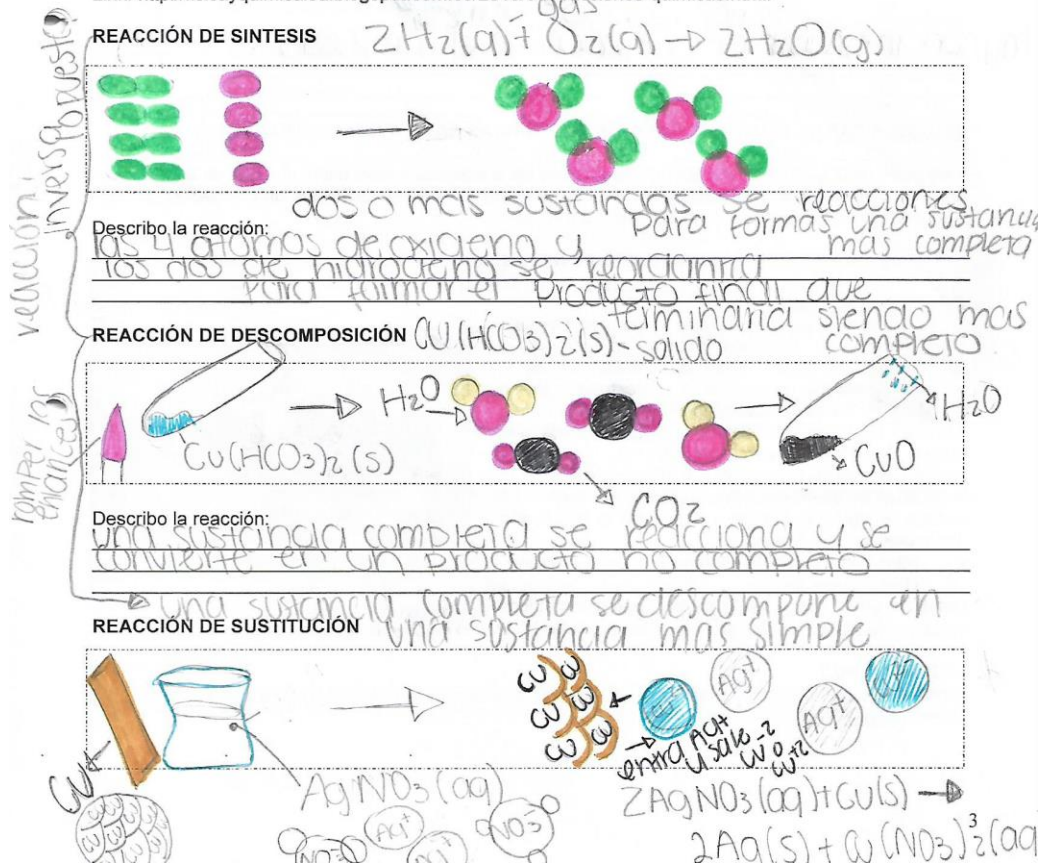 gas
REACCIÓN DE SINTESIS 2H2(g) + O2(g) → 2H2O(g)
reacción: inversa opuesta
dos o mas sustancias se reacciones
para formas una sustancia
mas completa
Describo la reacción:
las 4 atomos de oxigeno y
los dos de hidrogeno se reorganiza
para formar el producto final que
terminaria siendo mas
completo
REACCIÓN DE DESCOMPOSICIÓN Cu(HCO3)2(s) - solido
romper los enlaces
H2O
Cu(HCO3)2(s)
H2O
CuO
CO2
Describo la reacción:
una sustancia completa se reacciona y se
convierte en un producto no completo
una sustancia completa se descompone en
una sustancia mas simple
REACCIÓN DE SUSTITUCIÓN
Cu Cu
Cu Cu
Cu Cu
Ag+
Ag+
entra Ag+
y sale
Cu
AgNO3(aq)
Cu Cu Cu Cu
NO3-
Ag+
Ag+
NO3-
2AgNO3(aq) + Cu(s) →
2Ag(s) + Cu(NO3)2(aq
3